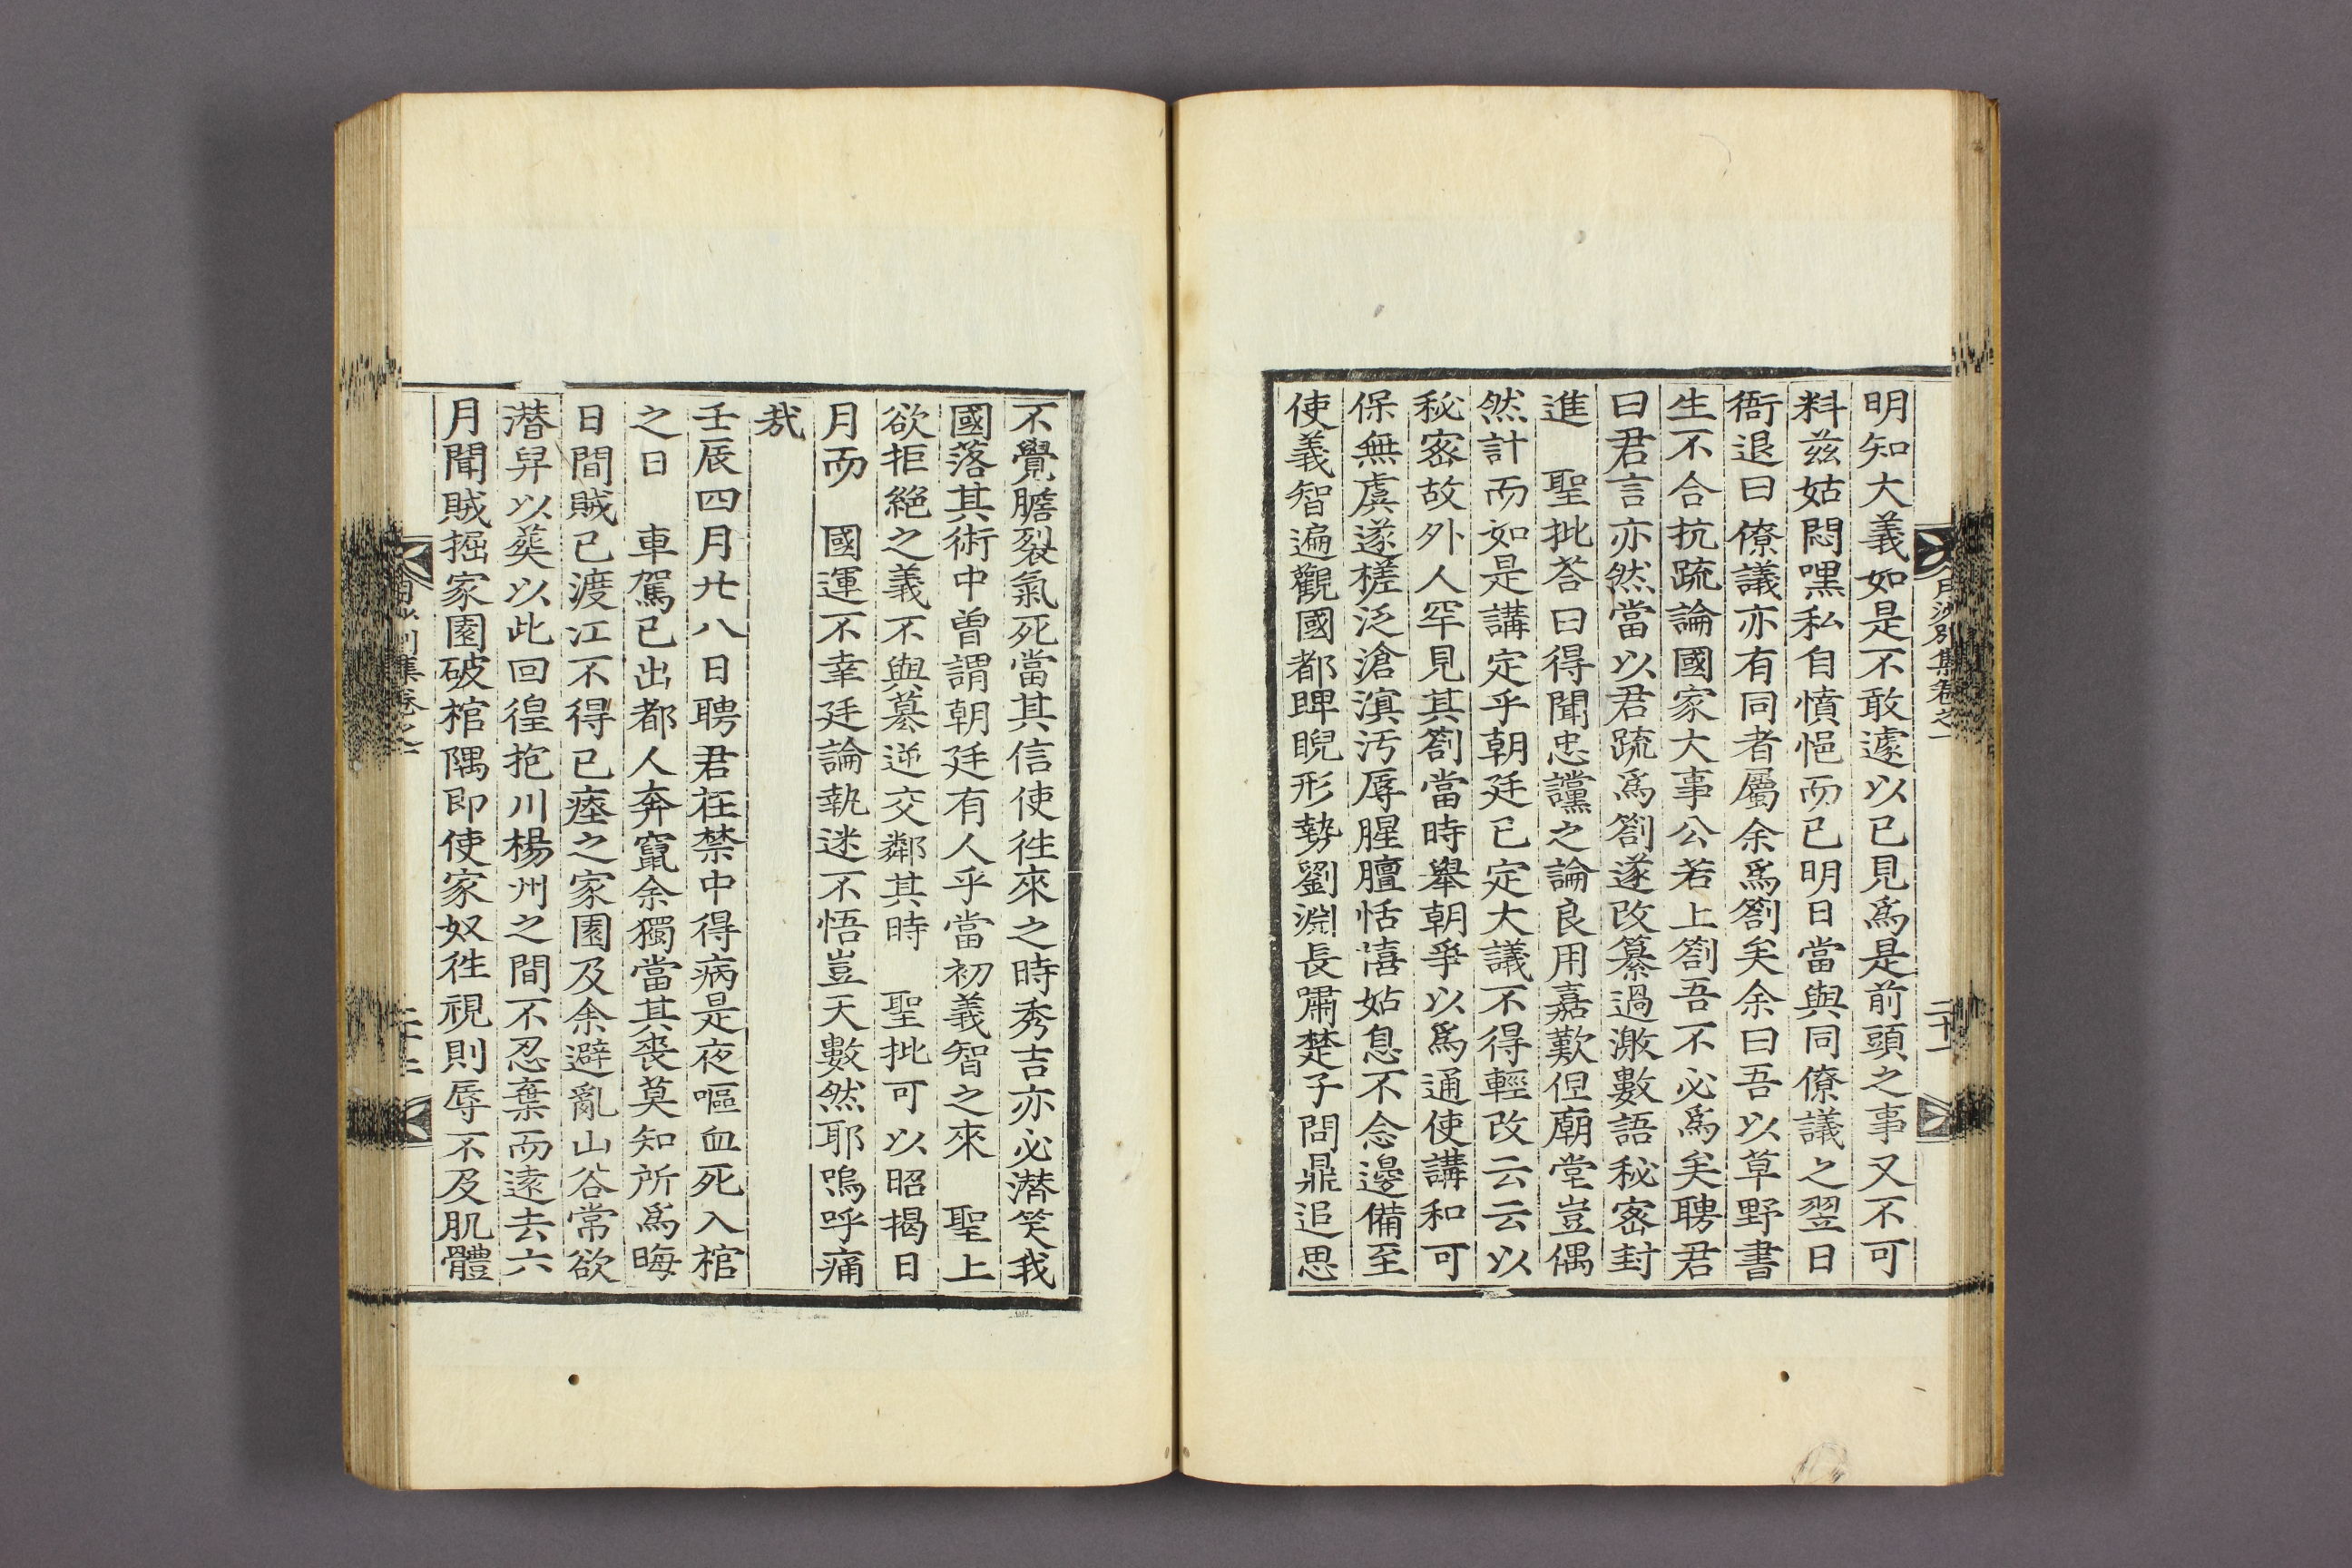 明知大義如是不敢遽以已見爲是前頭之事又不可
料茲姑悶嘿私自憤悒而已明日當與同僚議之翌日
衙退曰僚議亦有同者屬余爲劄矣余曰吾以草野書
生不合抗疏論國家大事公若上劄吾不必爲矣聘君
曰君言亦然當以君疏爲劄遂改纂過激數語秘密封
進　聖批荅曰得聞忠讜之論良用嘉歎但廟堂豈偶
然計而如是講定乎朝廷已定大議不得輕改云云以
秘密故外人罕見其劄當時舉朝爭以爲通使講和可
保無虞遂槎泛滄溟汚辱腥膻恬憘姑息不念邊備至
使義智遍觀國都睥睨形勢劉淵長嘯楚子問鼎追思
月沙別集卷之一
二十一
不覺膽裂氣死當其信使徃來之時秀吉亦必潜笑我
國落其術中曾謂朝廷有人乎當初義智之來　聖上
欲拒絕之義不與簒逆交鄰其時　聖批可以昭揭日
月而　國運不幸廷論執迷不悟豈天數然耶嗚呼痛
㢤
壬辰四月廿八日聘君在禁中得病是夜嘔血死入棺
之日　車駕已出都人奔竄余獨當其喪莫知所爲晦
日間賊已渡江不得已瘞之家園及余避亂山谷常欲
潜舁以葬以此回徨抱川楊州之間不忍棄而遠去六
月聞賊掘家園破棺隅即使家奴徃視則辱不及肌體
集卷之一